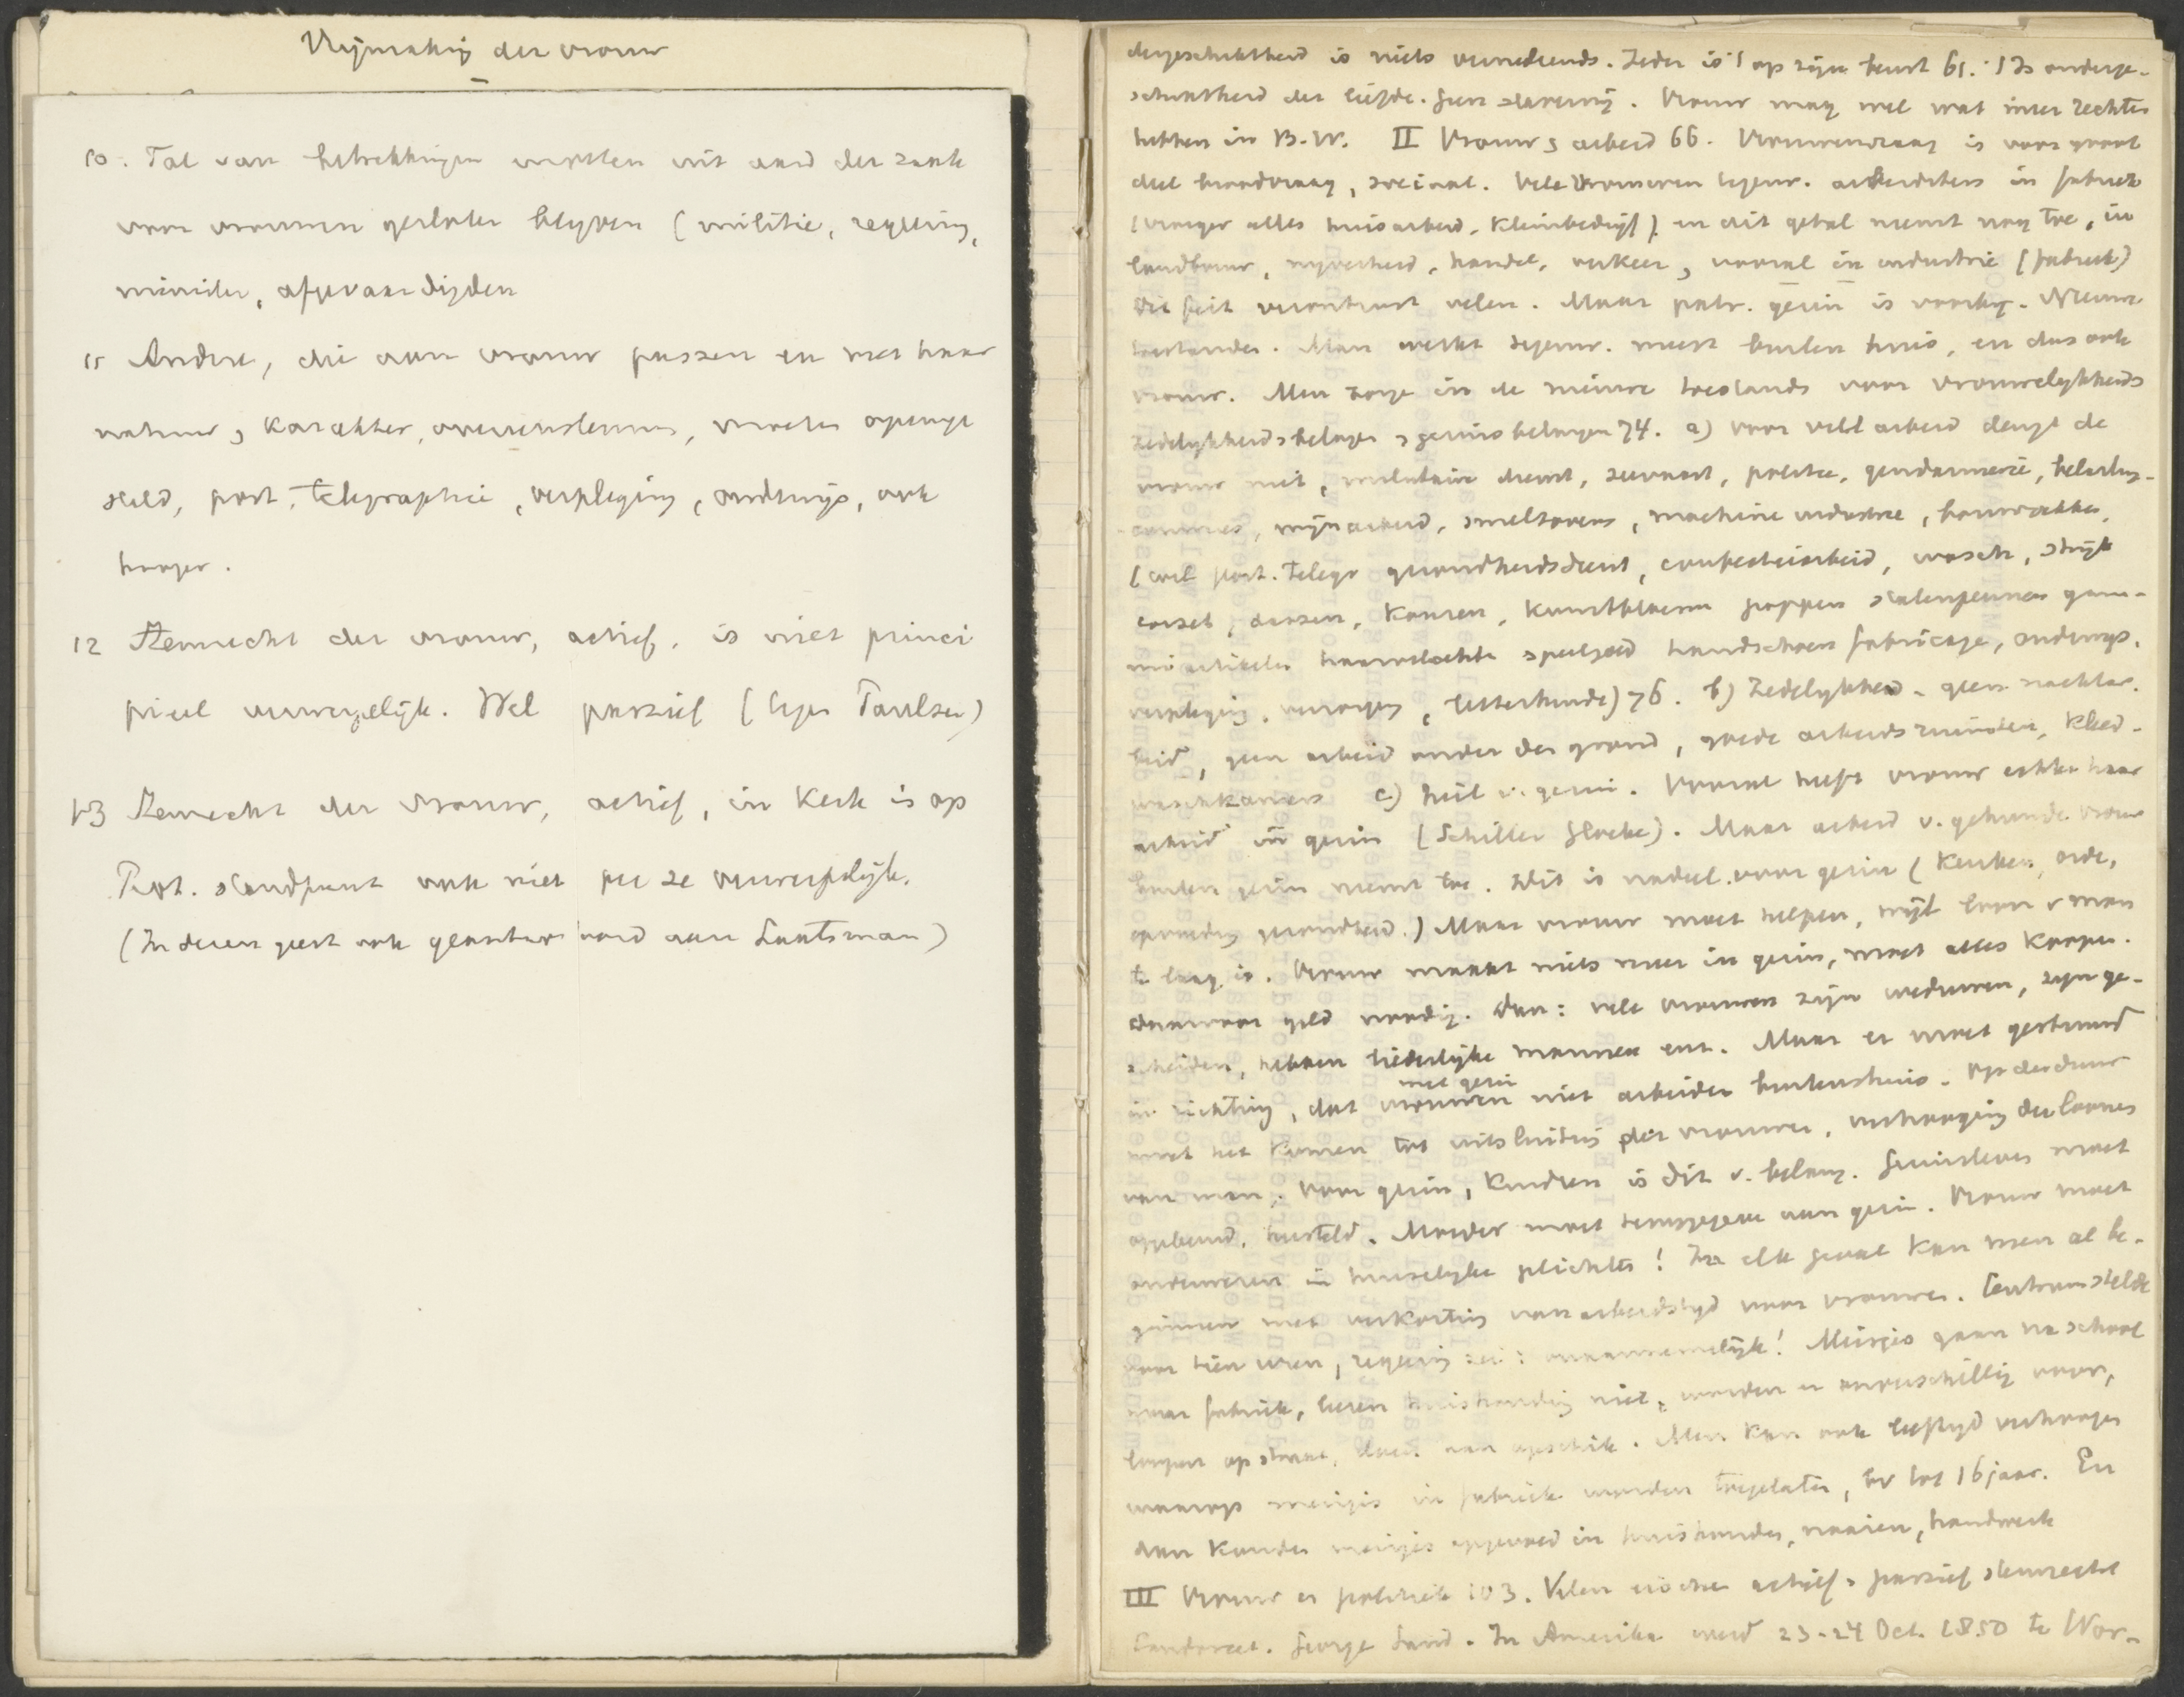 Vrijmaking der vrouw
10. Tal van betrekkingen moeten uit aard der zaak
voor vrouwen gesloten blijven (militie, regering,
minister, afgevaardigden
11 Andere, die aan vrouw passen en met haar
natuur, karakter, overeenstemmen, moeten openge
steld, post, telegraphie, verpleging, onderwijs, ook
hooger.
12 Stemrecht der vrouw, actief, is niet princi
pieel verwerpelijk. Wel passief (tegen Paulsen)
13 Stemrecht der vrouw, actief, in Kerk is op
Prot. standpunt ook niet per se verwerpelijk.
(In dezen geest ook geantwoord aan Lantsman)
dergeschiktheid is niets vernederends. Ieder is 't op zijn beurt 61. 't Is onderge-
schiktheid der liefde. Geen slavernij. Vrouw mag wel wat meer rechten
hebben in B.W. II Vrouw & arbeid 66. Vrouwenvraag is voor groot
deel broodvraag, sociaal. Vele vrouwen tegenw. arbeidsters in fabriek
(vroeger alles huisarbeid, kleinbedrijf) en dit getal neemt nog toe, in
landbouw, nijverheid, handel, verkeer, vooral in industrie (fabriek)
Dit feit verontrust velen. Maar patr. gezin is voorbij. Nieuwe
toestanden. Man werkt tegenw. meest buiten huis, en dus ook
vrouw. Men zorge in de nieuwe toestands voor vrouwelijkheids
zedelijkheidsbelangen & gezinsbelangen 74. a) voor veel arbeid deugt de
vrouw niet, militaire dienst, zeevaart, politie, gendarmerie, belasting-
commies, mijnarbeid, smeltovens, machine industrie, bouwvakken,
(wel post. telegr gezondheidsdienst, confectiearbeid, wasch, strijk
corset, doozen, kousen, kunstbloemen poppen stalenpennen gum-
mi artikelen haarvlechten speelgoed handschoen fabricage, onderwijs,
verpleging, letterkunde) 76. b) Zedelijkheid. geen nachtar-
beid, geen arbeid onder den grond, goede arbeidsruimten, kleed-
waschkamers c) heil v. gezin. Vooral heeft vrouw echter haar
arbeid in gezin (Schiller Glocke). Maar arbeid v. gehuwde vrouw
buiten gezin neemt toe. Dit is nadeel voor gezin (keuken, orde,
opvoeding gezondheid.) Maar vrouw moet helpen, wijl loon v man
te laag is. Vrouw maakt niets meer in gezin, moet alles koopen.
daarvoor geld noodig. Dan: vele vrouwen zijn weduwen, zijn ge-
scheiden, hebben liederlijke mannen enz. Maar er moet gestuurd
in richting, dat vrouwen met gezin niet arbeiden buitenshuis. Op den duur
moet het komen tot uitsluiting der vrouwen, verhooging der loonen
van man. Voor gezin, kindren is dit v. belang. Gezinsleven moet
opgebouwd, hersteld. Moeder moet teruggegeven aan gezin. Vrouw moet
onderwezen in huiselijke plichten! In elk geval kan men al be-
ginnen met verkorting van arbeidstijd voor vrouwen. Centrum stelde
voor tien uren, regering zei: onaannemelijk! Meisjes gaan na school
naar fabriek, leeren huishouding niet, worden er onverschillig voor,
loopen op straat, doen aan opschik. Men kan ook leeftijd verhoogen
waarop meisjes in fabriek worden toegelaten, bv tot 16 jaar. En
dan konden meisjes opgevoed in huishouden, naaien, handwerk
III Vrouw en politiek 103. Velen eischen actief & passief stemrecht
Condorcet. George Sand. In Amerika werd 23-24 Oct. 1850 te Wor-